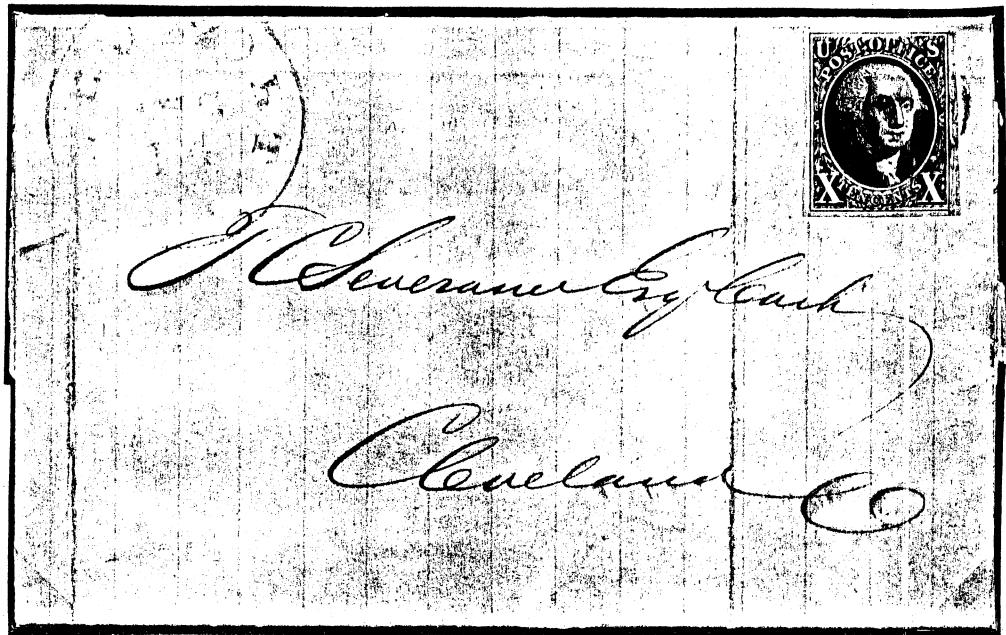 U S
POST OFFICE
X TEN CENTS X
T C Severance Esq Cash
Cleveland O